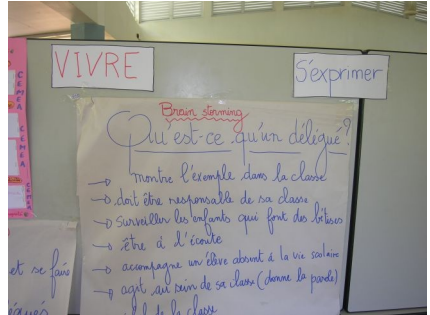 VIVRE
S'exprimer
CEMEA
CEMEA
CEMEA
Brain storming
Qu'est-ce qu'un délégué?
→ montre l'exemple dans la classe
→ doit être responsable de sa classe
→ surveiller les enfants qui font des bêtises
→ être à l'écoute
→ accompagne un élève absent à la vie scolaire
→ agit au sein de sa classe (donne la parole)
de la classe
et se faire